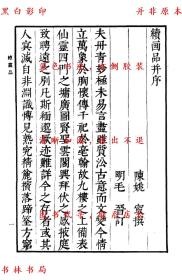 黑白影印
打开非原本
續畫品并序
陳姚最撰
明毛晉訂
夫丹青妙極未易言盡雖質沿古意而文變今情
立萬象於胸懷傳千祀於毫翰故九樓之上備表
仙靈四門之墉廣圖賢聖雲閣興拜伏之感掖庭
致聘遠之別凡斯緬邈厥跡難詳今之存者或其
人冥滅自非淵識博見熟究精麤擯落蹄筌方窮
續畫品
书林书局